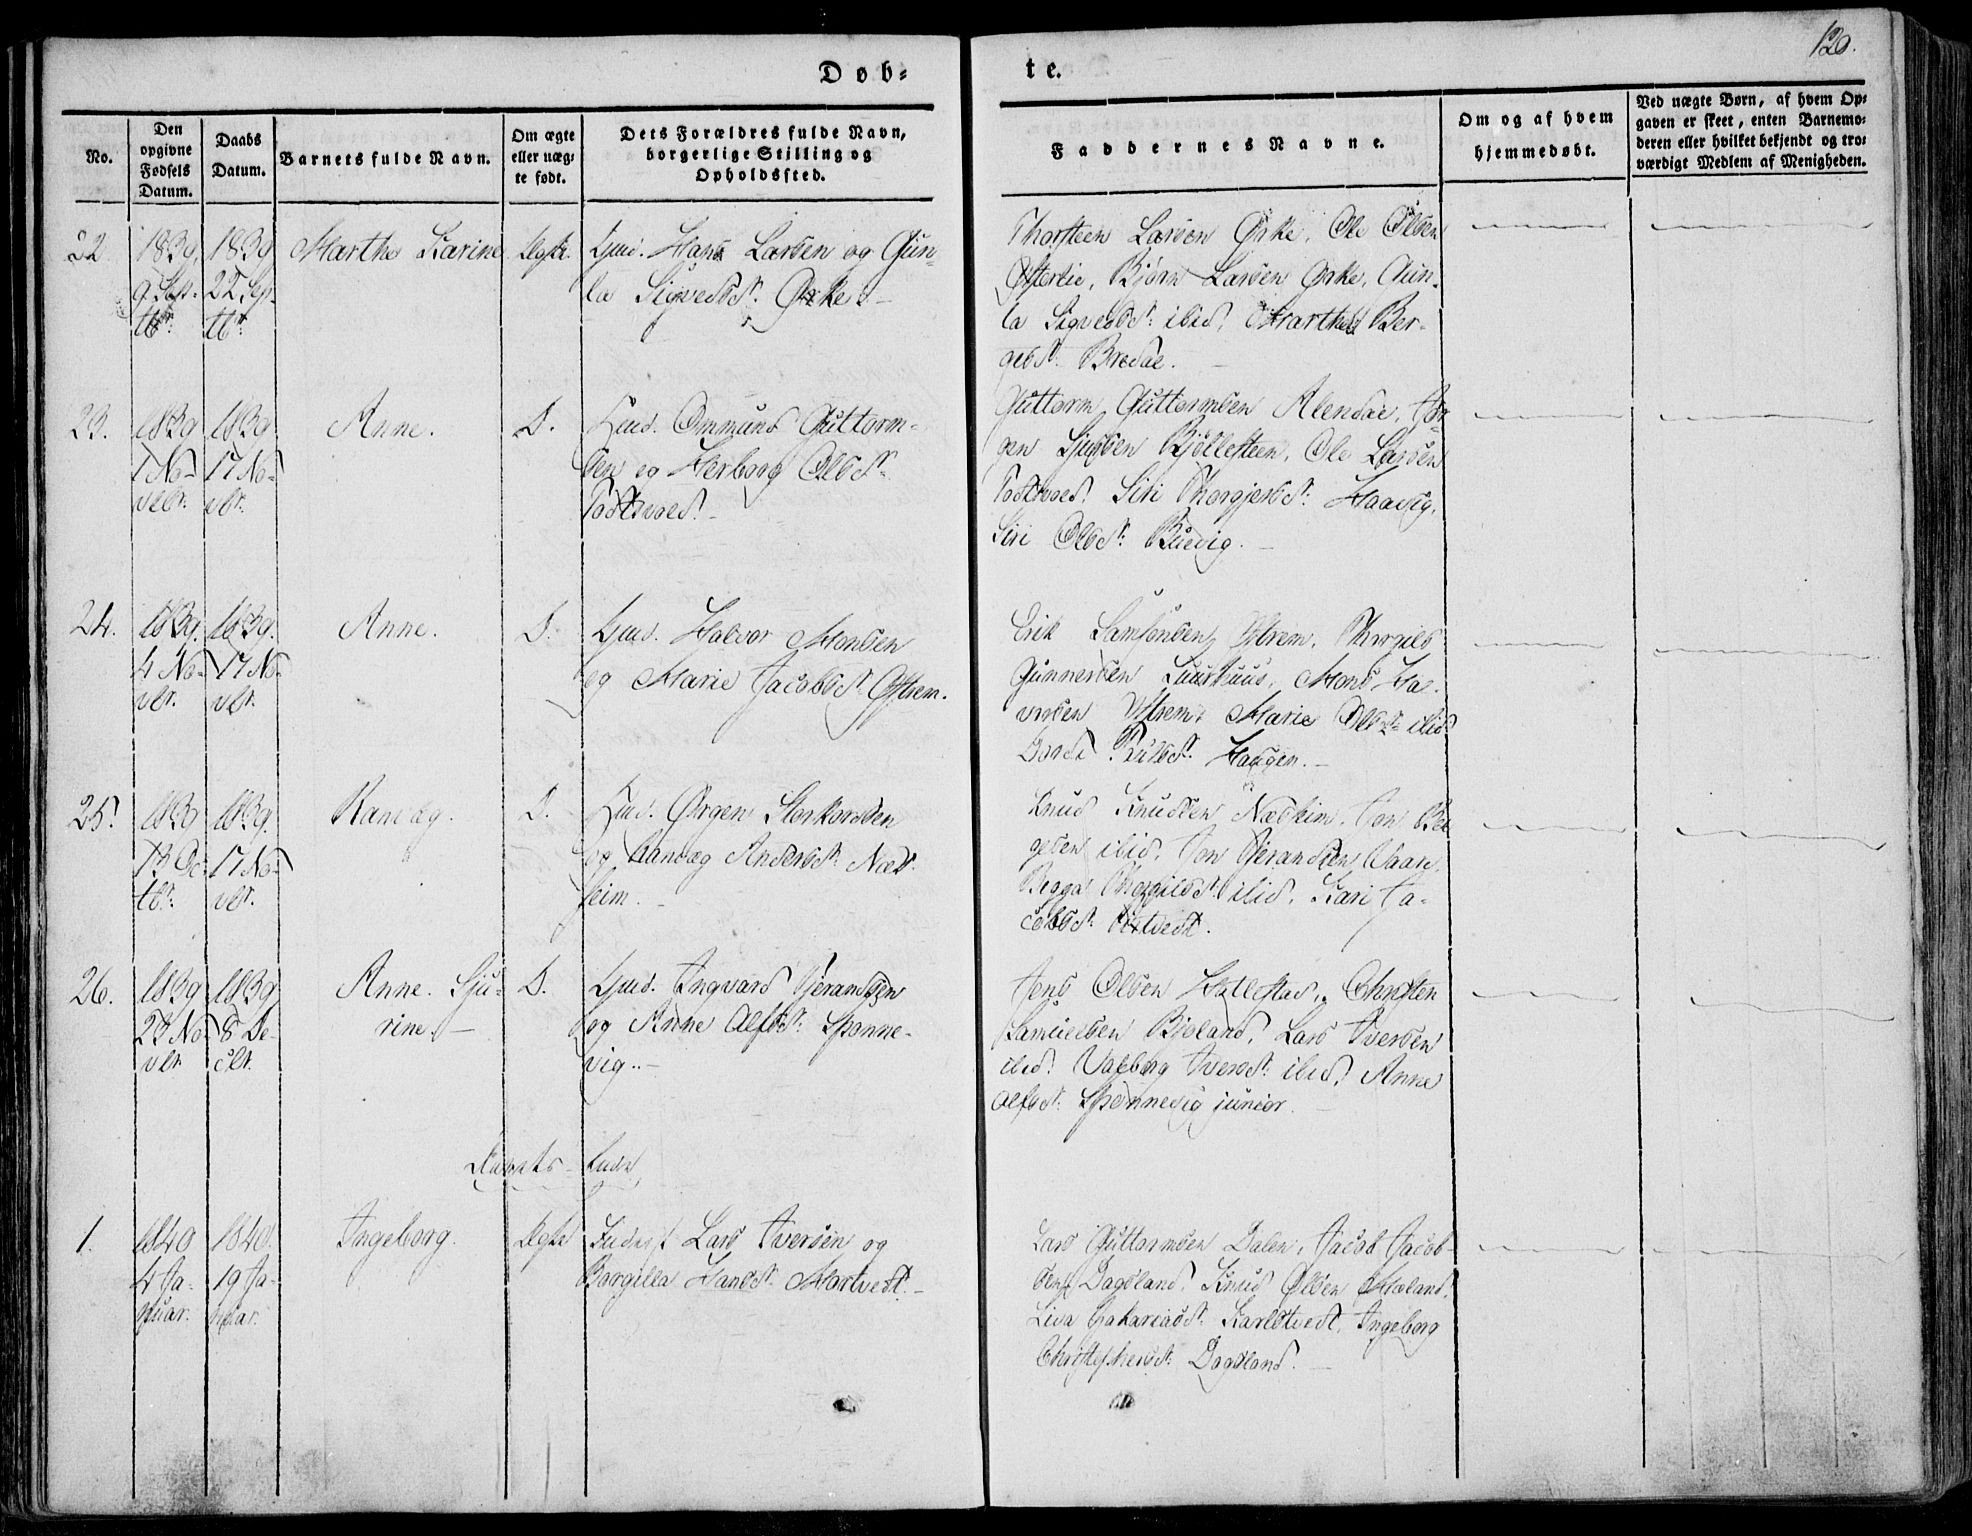 120.
Døb-
te.
No.
Den
opgivne
Fødsels
Datum.
Daabs
Datum.
Barnets fulde Navn.
Om ægte
eller uæg-
te født.
Dets Forældres fulde Navn,
borgerlige Stilling og
Opholdssted.
Faddernes Navne.
Om og af hvem
hjemmedøbt.
Ved uægte Børn, af hvem Op-
gaven er skeet, enten Barnemo-
deren eller hvilket bekjendt og tro-
værdigt Medlem af Menigheden.
22
1839
9 Sep-
tbr.
1839
22 Sep-
tbr.
Marthe Karine
Ægte.
Gmd. Hans Larsen og Gun-
la Sigvedsd. Ørke.
Thorsteen Larsen Ørke, Ole Olsen
Bjørn Larsen Ørke, Gun-
la Sigvedsd: ibid, Marthe Ber-
gesd. Bredal.
23.
1839
1 No-
vebr.
1839
17 No-
vbr.
Anne.
D.
Gmd. Ommund Guttorm-
sen og Herborg Olsd.
Guttorm Guttormsen Alendal, Jør-
gen Sjursen Bjellesteen, Ole Larsen
Siri Thorgjersd: Haavig,
Siri Olsd: Buevig.
24.
1839.
4 No-
vbr.
1839.
17 No-
vbr.
Anne.
D.
Gmd. Halvor Monsen
og Marie Jacobsd. Østrem.
Erik Samsonsen Østrem, Thorgils
Gunnersen Mons Ha-
vorsen Østrem, Marie Olsd: ibid
Haugen.
25.
1839
13 Oc-
tbr.
1839.
17 No-
vbr.
Ranvæg.
D.
Gmd. Ørgen Storkorsen
og Ranvæg Andersd: Næs-
heim.
Knud Knudsen Næsheim, Jon Bør-
gesen ibid, Jon Tjerandsen Vaare,
ibid, Kari Ja-
cobsd:
26.
1839
23 No-
vbr.
1839
8 De-
cbr.
Anne Sju-
rine.
D.
Gmd. Ingvard Tjerandsen
og Anne Alfsd: Spønne-
vig.
Jens Olsen Hallestad, Christen
Samuelsen Bjoland, Lars Iversen
ibid. Valborg Iversd: ibid, Anne
Alfsd: Spønnevig junior.
1.
1840
4 Ja-
nuar.
1840.
19 Ja-
nuar.
Ingeborg.
Ægte
Lars Iversen og
Borgilla Hansd. Mortvedt.
Lars Guttormsen Dalen, Jacob Jacob-
sen Dagsland, Knud Olsen Mæland,
Lisa Zakariasd: Karlstvedt, Ingeborg
Christophersd: Dagsland.